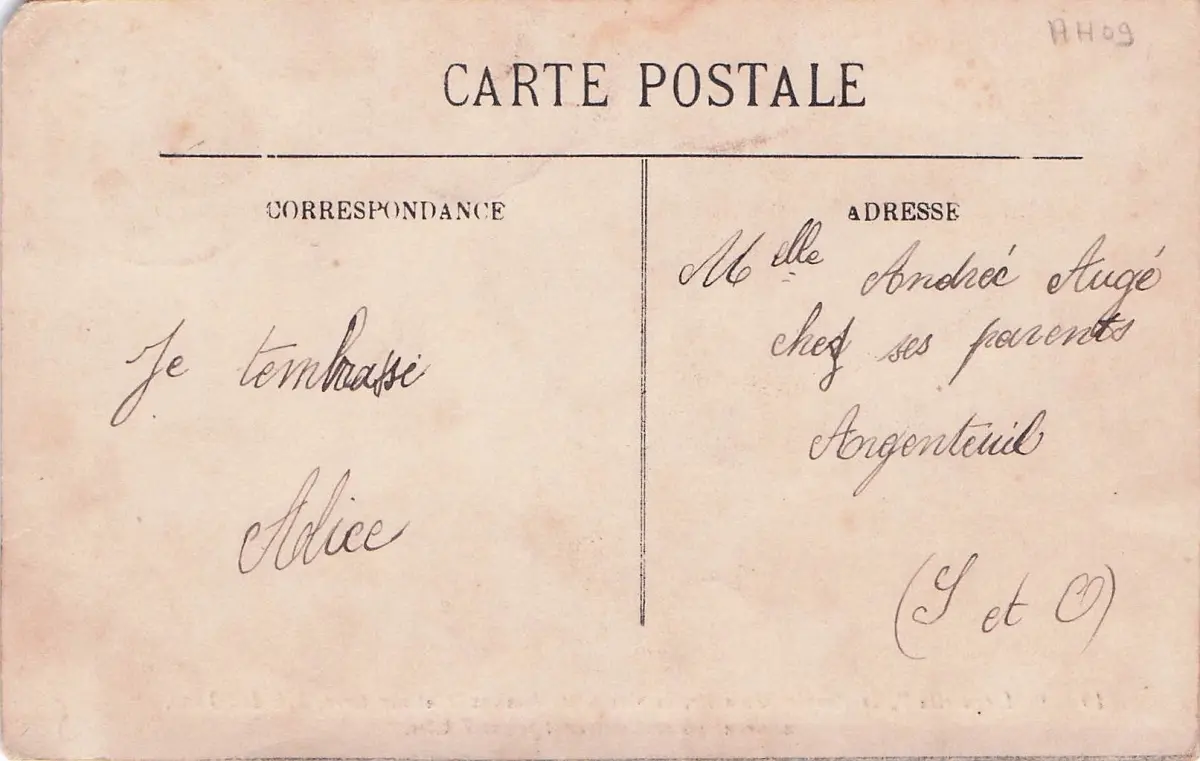 AH09
CARTE POSTALE
CORRESPONDANCE
Je tembrasse
Alice
ADRESSE
Melle Andrée Augé
chez ses parents
Argenteuil
(S et O)